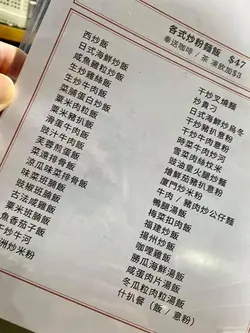 各式炒粉麵飯 $47
奉送咖啡 / 茶 凍飲加$3
西炒飯
日式海鮮炒飯
咸魚雞粒炒飯
生炒雞絲飯
生炒牛肉飯
菜脯蛋白炒飯
粟米肉粒飯
粟米豬扒飯
滑蛋牛肉飯
豉汁牛肉飯
芙蓉煎蛋飯
菜遠排骨飯
涼瓜排骨飯
味菜班腩飯
豉椒班腩飯
粟米班腩飯
古法咸雞飯
魚香茄子飯
干炒牛河
洲炒米粉
干炒叉燒麵
炒貴刁
日式海鮮炒烏冬
干炒豬扒意粉
干炒牛肉意粉
時菜牛肉炒河
雪菜肉絲炆米
豉油皇火腿炒麵
燴鮮茄豬扒意粉
廈門炒米粉
牛肉 / 豬肉炒公仔麵
鴨腿湯飯
梅菜扣肉飯
福建炒飯
揚州炒飯
咖喱雞飯
勝瓜海鮮湯飯
咸蛋肉片湯飯
冬瓜粒肉粒湯飯
什扒餐 ( 飯 / 意粉 )